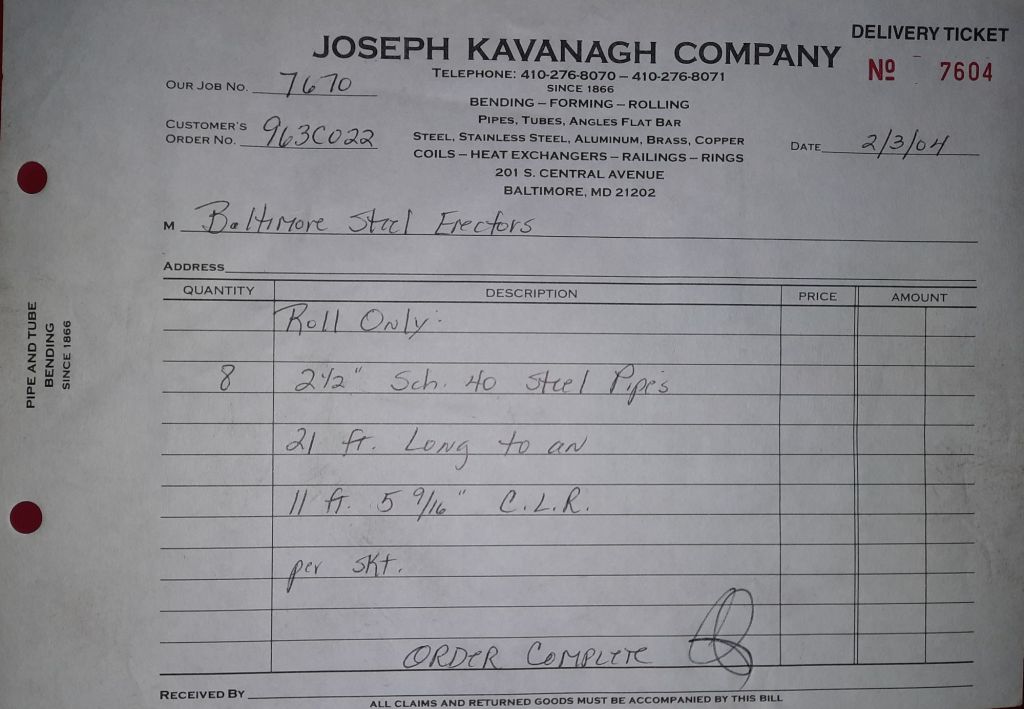 DELIVERY TICKET
JOSEPH KAVANAGH COMPANY
Nº 7604
TELEPHONE: 410-276-8070 – 410-276-8071
SINCE 1866
OUR JOB NO. 7670
BENDING – FORMING – ROLLING
PIPES, TUBES, ANGLES FLAT BAR
CUSTOMER'S
ORDER NO. 963C022
STEEL, STAINLESS STEEL, ALUMINUM, BRASS, COPPER
DATE 2/3/04
COILS – HEAT EXCHANGERS – RAILINGS – RINGS
201 S. CENTRAL AVENUE
BALTIMORE, MD 21202
M Baltimore Steel Erectors
ADDRESS
QUANTITY DESCRIPTION PRICE AMOUNT
Roll Only:
8 2½" Sch. 40 Steel Pipes
21 ft. Long to an
11 ft. 5 9/16" C.L.R.
per skt.
ORDER COMPLETE
RECEIVED BY
ALL CLAIMS AND RETURNED GOODS MUST BE ACCOMPANIED BY THIS BILL
PIPE AND TUBE
BENDING
SINCE 1866